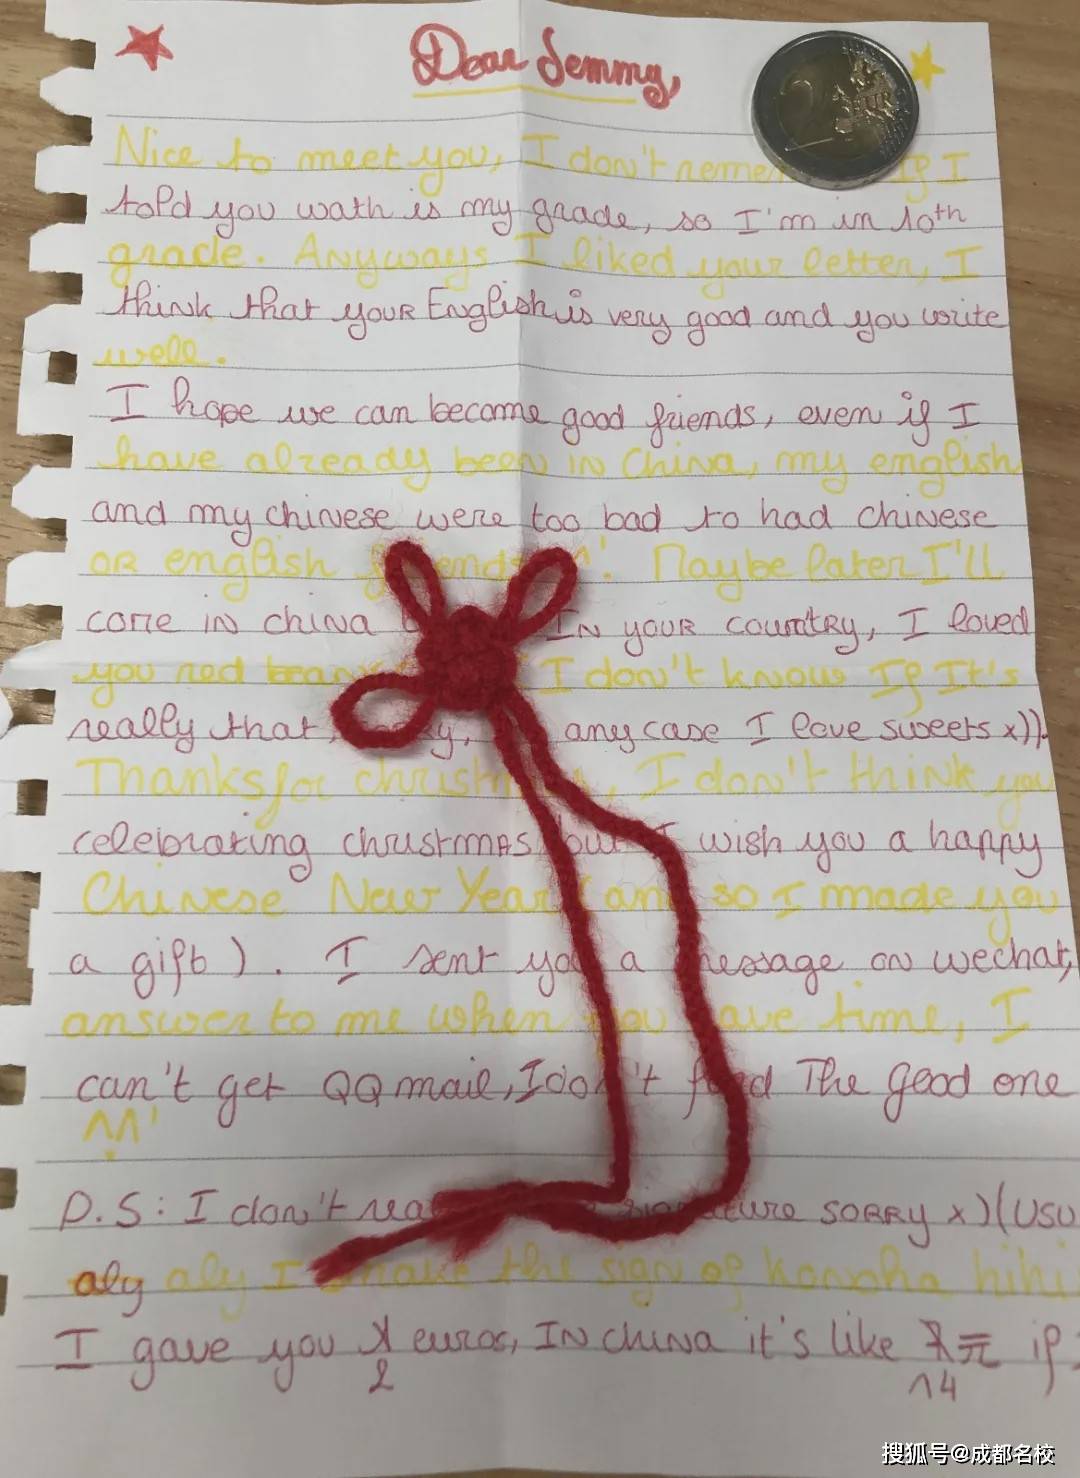 Dear Jemmy,
Nice to meet you, I don't If I
told you wath is my grade, so I'm in 10th
grade. Anyways I liked your letter, I
think that your English is very good and you write
well.
I hope we can become good friends, even if I
have already been in China, my english
and my chinese were too bad to had chinese
or english ^^'. Maybe later I'll
come in china In your country, I loved
you red I don't know If It's
really that, any case I love sweets x)).
Thanks for I don't think you
celebrating christmas but I wish you a happy
Chinese New Year (and so I made you
a gift). I sent you a message on wechat,
answer to me when you have time, I
can't get QQ mail, I don't find The good one
^^'
P.S: I don't signature SORRY x) (usu
aly aly I make the sign of konoha hihi
I gave you 2 euros, In china it's like 14元 if
2
搜狐号@成都名校